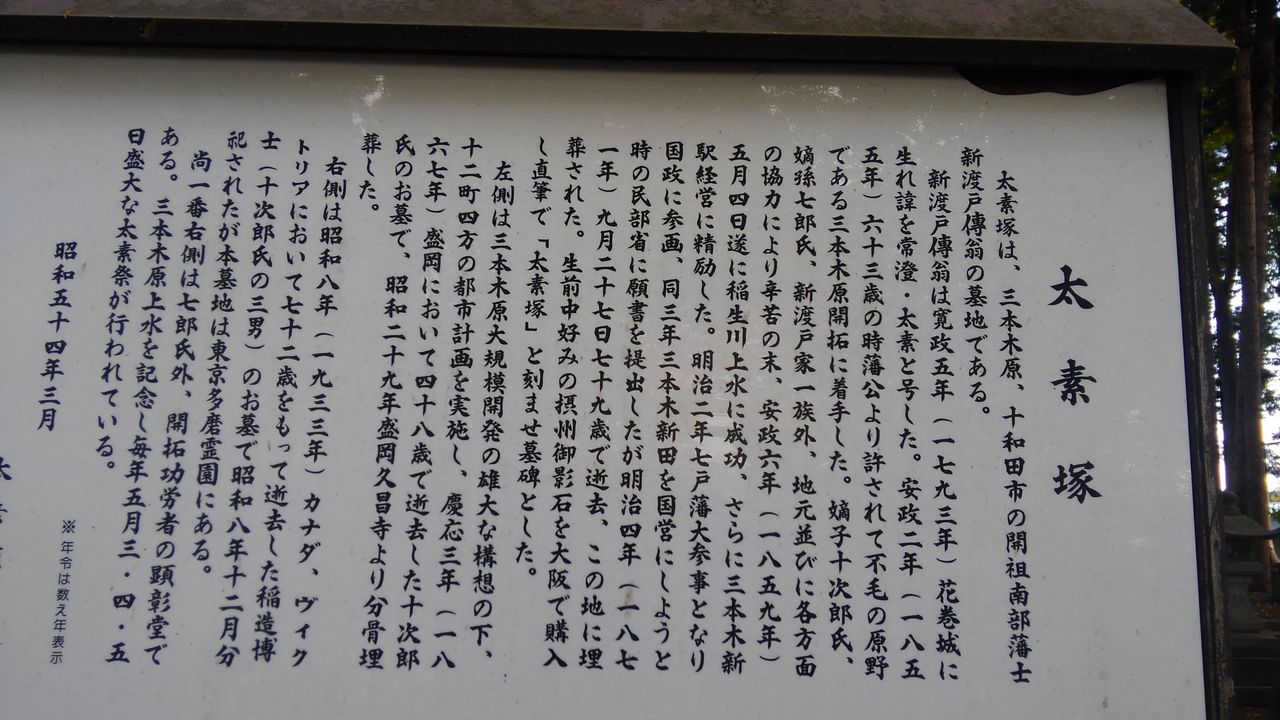 太素塚
太素塚は、三本木原、十和田市の開祖南部藩士
新渡戸傳翁の墓地である。
新渡戸傳翁は寛政五年（一七九三年）花巻城に
生れ諱を常澄・太素と号した。安政二年（一八五
五年）六十三歳の時藩公より許されて不毛の原野
である三本木原開拓に着手した。嫡子十次郎氏、
嫡孫七郎氏、新渡戸家一族外、地元並びに各方面
の協力により辛苦の末、安政六年（一八五九年）
五月四日遂に稲生川上水に成功、さらに三本木新
駅経営に精励した。明治二年七戸藩大参事となり
国政に参画、同三年三本木新田を国営にしようと
時の民部省に願書を提出したが明治四年（一八七
一年）九月二十七日七十九歳で逝去、この地に埋
葬された。生前中好みの摂州御影石を大阪で購入
し直筆で「太素塚」と刻ませ墓碑とした。
左側は三本木原大規模開発の雄大な構想の下、
十二町四方の都市計画を実施し、慶応三年（一八
六七年）盛岡において四十八歳で逝去した十次郎
氏のお墓で、昭和二十九年盛岡久昌寺より分骨埋
葬した。
右側は昭和八年（一九三三年）カナダ、ヴィク
トリアにおいて七十二歳をもって逝去した稲造博
士（十次郎氏の三男）のお墓で昭和八年十二月分
祀されたが本墓地は東京多磨霊園にある。
尚一番右側は七郎氏外、開拓功労者の顕彰堂で
ある。三本木原上水を記念し毎年五月三・四・五
日盛大な太素祭が行われている。
※年令は数え年表示
昭和五十四年三月